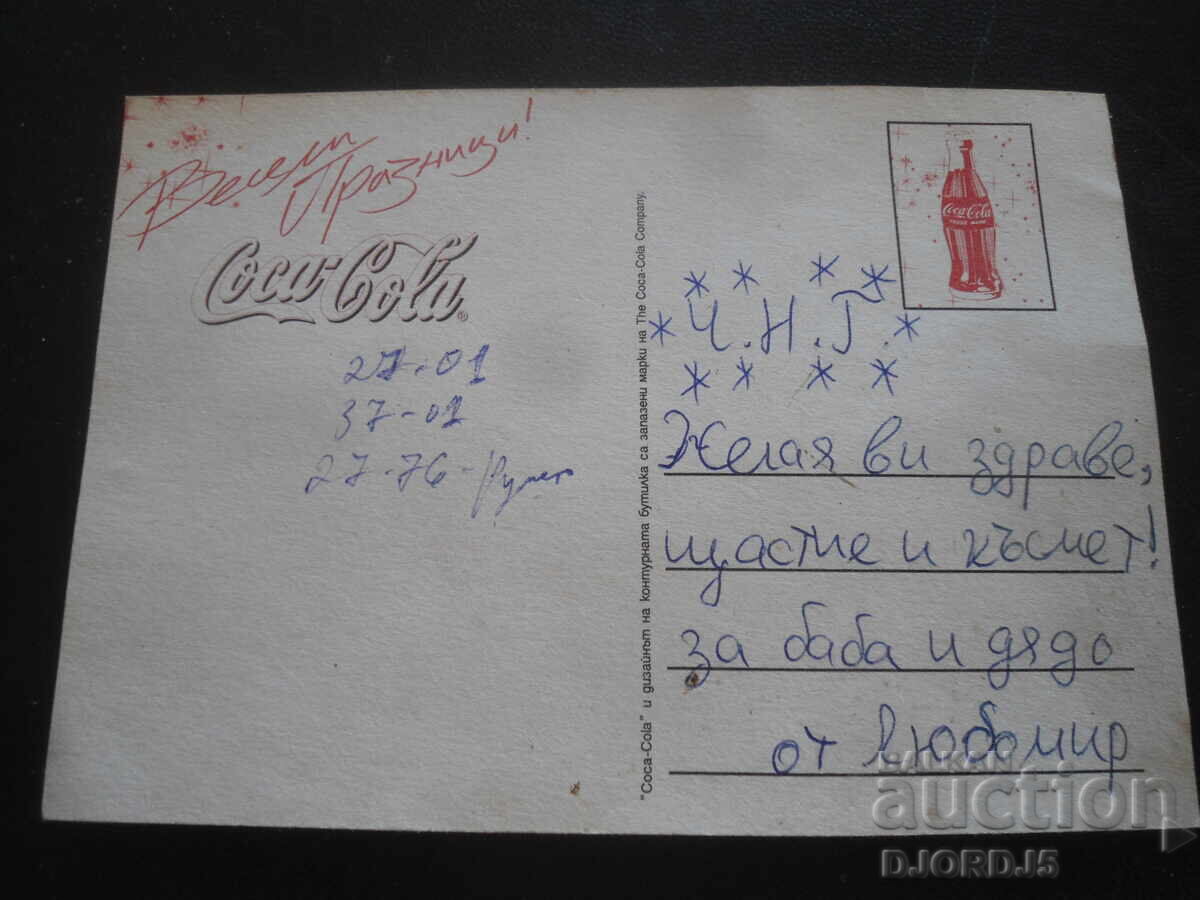 Весели
Празници!
Coca-Cola®
27-01
37-01
27-76-
"Coca-Cola" и дизайнът на контурната бутилка са запазени марки на The Coca-Cola Company.
Coca-Cola
TRADE MARK
* * * *
* Ч.Н.Г. *
* * * *
Желая ви здраве,
щастие и късмет!
за баба и дядо
от Любомир
BALKAN
auction
DJORDJ5